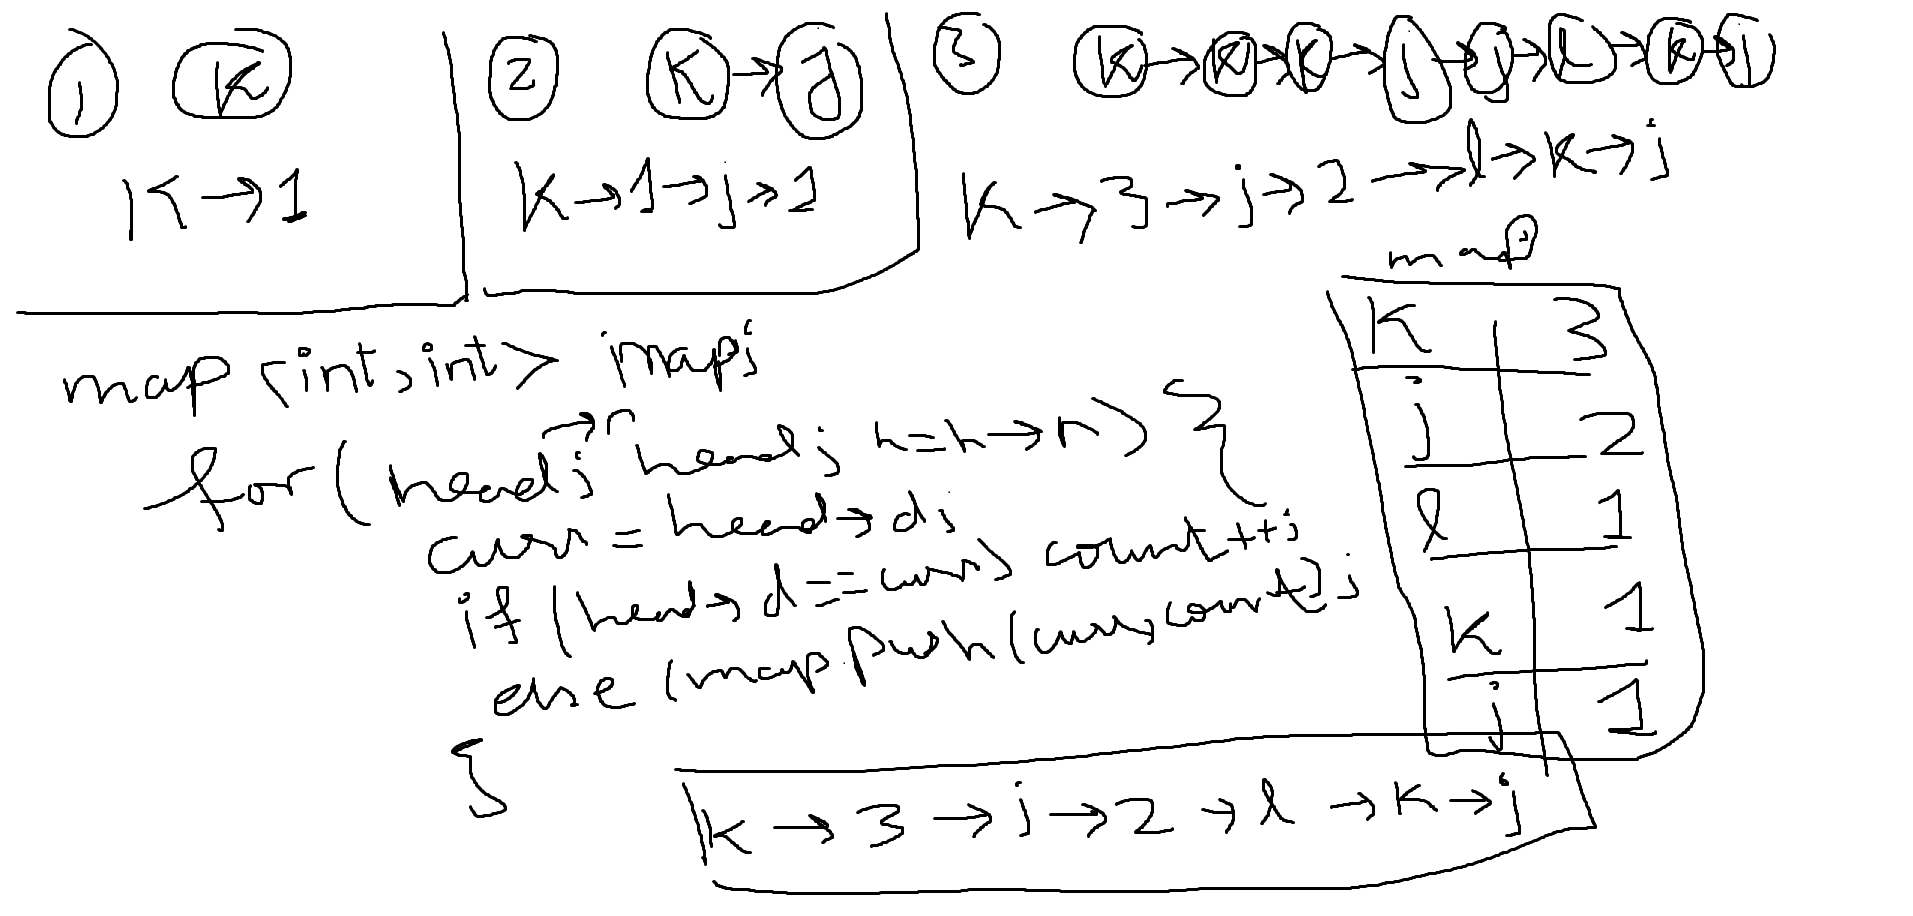 1 K
K→1
2 K→j
K→1→j→1
3 K→K→K→j→j→l→K→j
K→3→j→2→l→K→j
map
K 3
j 2
l 1
K 1
j 1
map <int, int> map;
for(head→n; head; h=h→n) {
curr = head→d;
if (head→d==curr) count++;
else (map.push(curr, count);
}
K→3→j→2→l→K→j